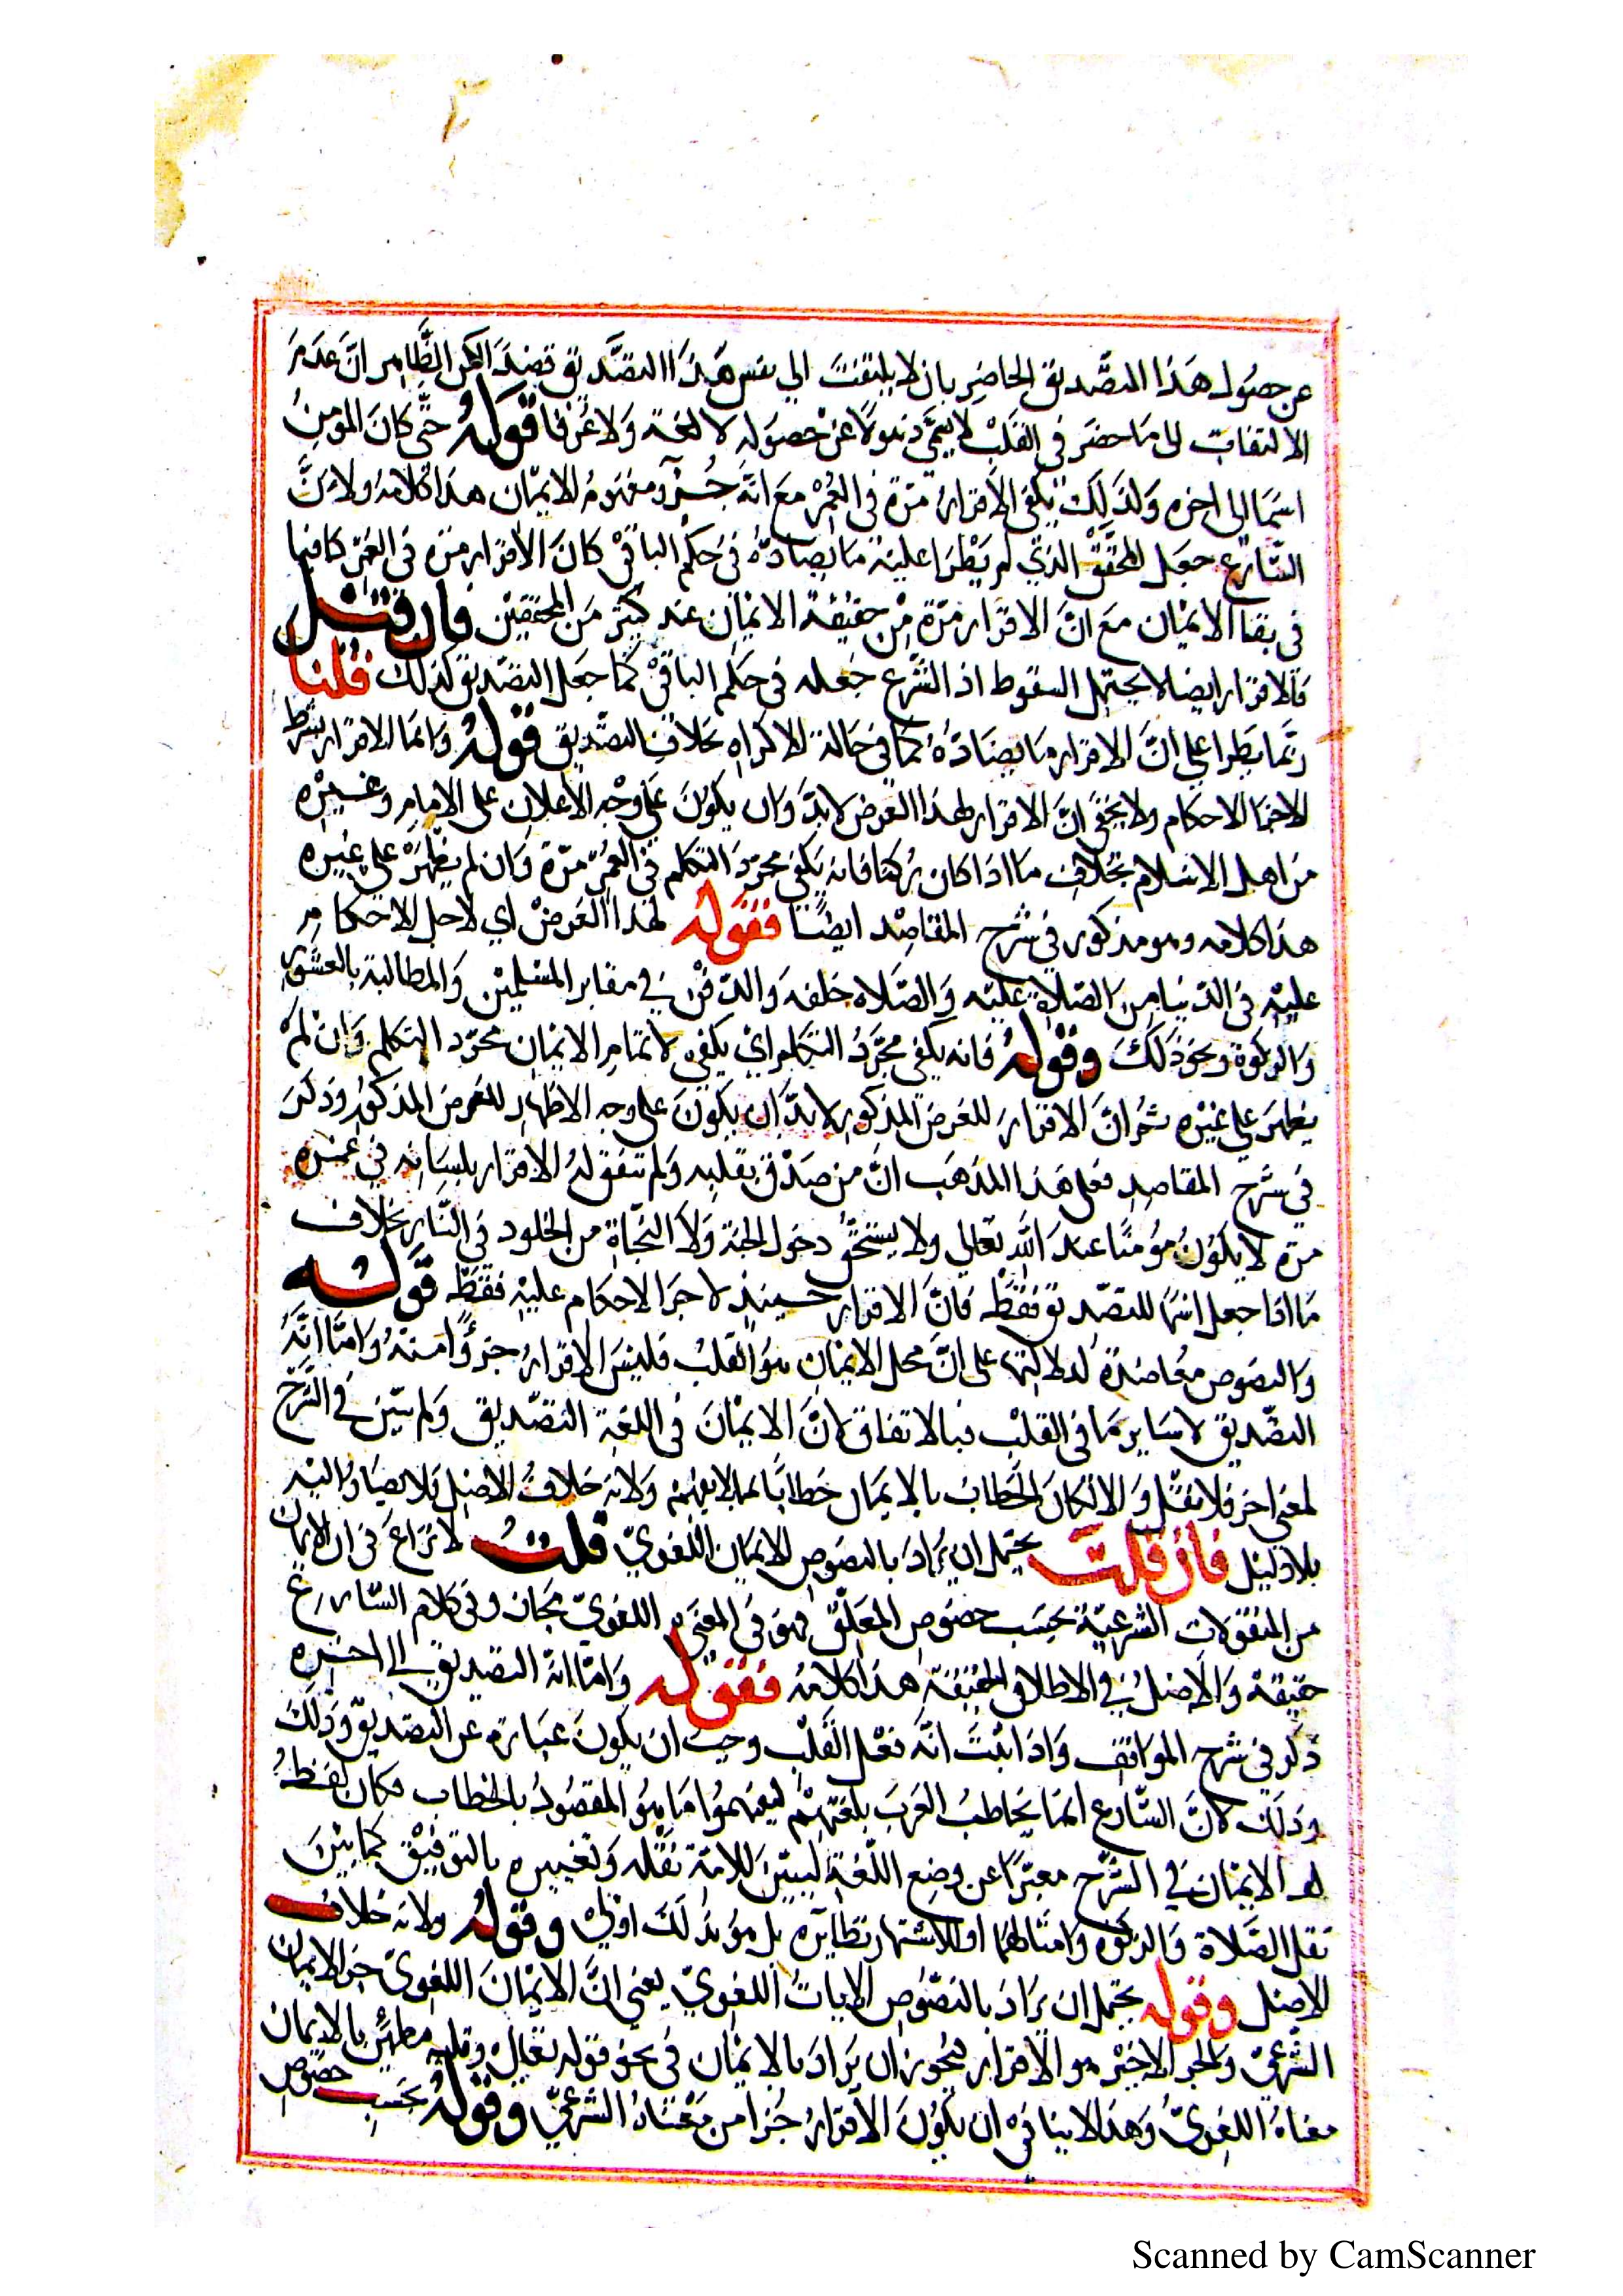 عن حصول هذا التصديق الحاضر بان لا يلتفت الي نفس هذا التصديق قصدا لكن الظاهر ان عدم
الالتفات الى ما حضر في القلب لا يسمى ذهولا عن حصوله لا لغة ولا عرفا قوله حتى كان المومن
اسما الى اخره ولذلك يكفى الاقرار مرة في العمر مع انه جزؤ مفهوم الايمان هذا كلامه ولان
الشارع جعل المحقق الذي لم يطرا عليه ما يضاده في حكم الباقي كان الاقرار مرة في العمر كافيا
في بقا الايمان مع ان الاقرار مرة من حقيقة الايمان عند كثير من المحققين فان قيل
فالاقرار ايضا لا يحتمل السقوط اذ الشرع جعله في حكم الباقي كما جعل التصديق كذلك قلنا
ربما يطرا علي ان الاقرار ما يضاده كما في حالة الاكراه بخلاف التصديق قوله وانما الاقرار شرط
لاجرا الاحكام ولا يخفى ان الاقرار لهذا الغرض لا بد وان يكون على وجه الاعلان على الامام وغيره
من اهل الاسلام بخلاف ما اذا كان ركنا فانه يكفى مجرد التكلم في العمر مرة وان لم يظهر على غيره
هذا كلامه وهو مذكور في شرح المقاصد ايضا فقوله لهذا الغرض اي لاجل الاحكام
عليه في الدنيا من الصلاة عليه والصلاه خلفه والدفن في مقابر المسلمين والمطالبة بالعشور
والزكوة ونحو ذلك وقوله فانه يكفى مجرد التكلم اي يكفى لاتمام الايمان مجرد التكلم وان لم
يظهر على غيره ثم ان الاقرار للغرض المذكور لا بد ان يكون على وجه الاظهار للغرض المذكور وذكر
في شرح المقاصد فعلى هذا المذهب ان من صدق بقلبه ولم يتفق له الاقرار بلسانه في عمره
مرة لا يكون مؤمنا عند الله تعالى ولا يستحق دخول الجنة ولا النجاة من الخلود في النار بخلاف
ما اذا جعل اسما للتصديق فقط فان الاقرار حينيذ لاجرا الاحكام عليه فقط قوله
والنصوص معاضدة لدلالتها على ان محل الايمان هو القلب فليس الاقرار جزؤا منه واما انه
التصديق لا ساير ما في القلب فبالاتفاق لان الايمان في اللغة التصديق ولم يبين في الشرح
لمعنى اخر فلا نقل والا لكان الخطاب بالايمان خطابا بما لا يفهم ولانه خلاف الاصل فلا يصار اليه
بلا دليل فان قلت يحتمل ان يراد بالنصوص الايمان اللغوي قلت لا نزاع في ان الايمان
من المنقولات الشرعية بحسب خصوص المعلق فهو في المعنى اللغوي مجاز وفي كلام الشارع
حقيقة والاصل في الاطلاق الحقيقة هذا كلامه فقوله واما انه التصديق الى اخره
ذكر في شرح المواقف واذا ثبت انه فعل القلب وجب ان يكون عبارة عن التصديق وذلك
وذلك لان الشارع انما يخاطب العرب بلغتهم ليفهموا ما هو المقصود بالخطاب فكان لفظ
الايمان في الشرح مغيرا عن وضع اللغة لبين للامة نقله وتغييره بالتوقيق كما بين
نقل الصلاة والزكوة وامثالهما اولا لاشتهار نظايره بل هو بذلك اولى وقوله ولانه خلاف
الاصل وقوله يحتمل ان يراد بالنصوص الايات اللغوي يعني ان الايمان اللغوي جز الايمان
الشرعي والجز الاخير هو الاقرار فيجوز ان يراد بالايمان في نحو قوله تعالى وقلبه مطمئن بالايمان
معناه اللغوي وهذا لا ينافي ان يكون الاقرار جزا من معناه الشرعي وقوله بحسب خصوص
Scanned by CamScanner